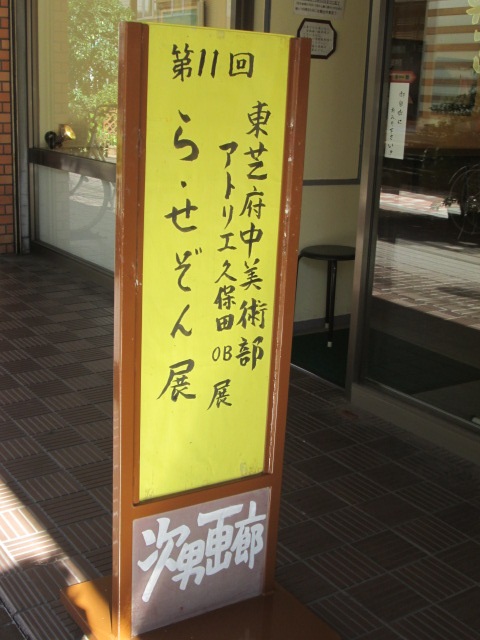 第11回
東芝府中美術部
アトリエ久保田OB展
ら・せぞん展
次男画廊